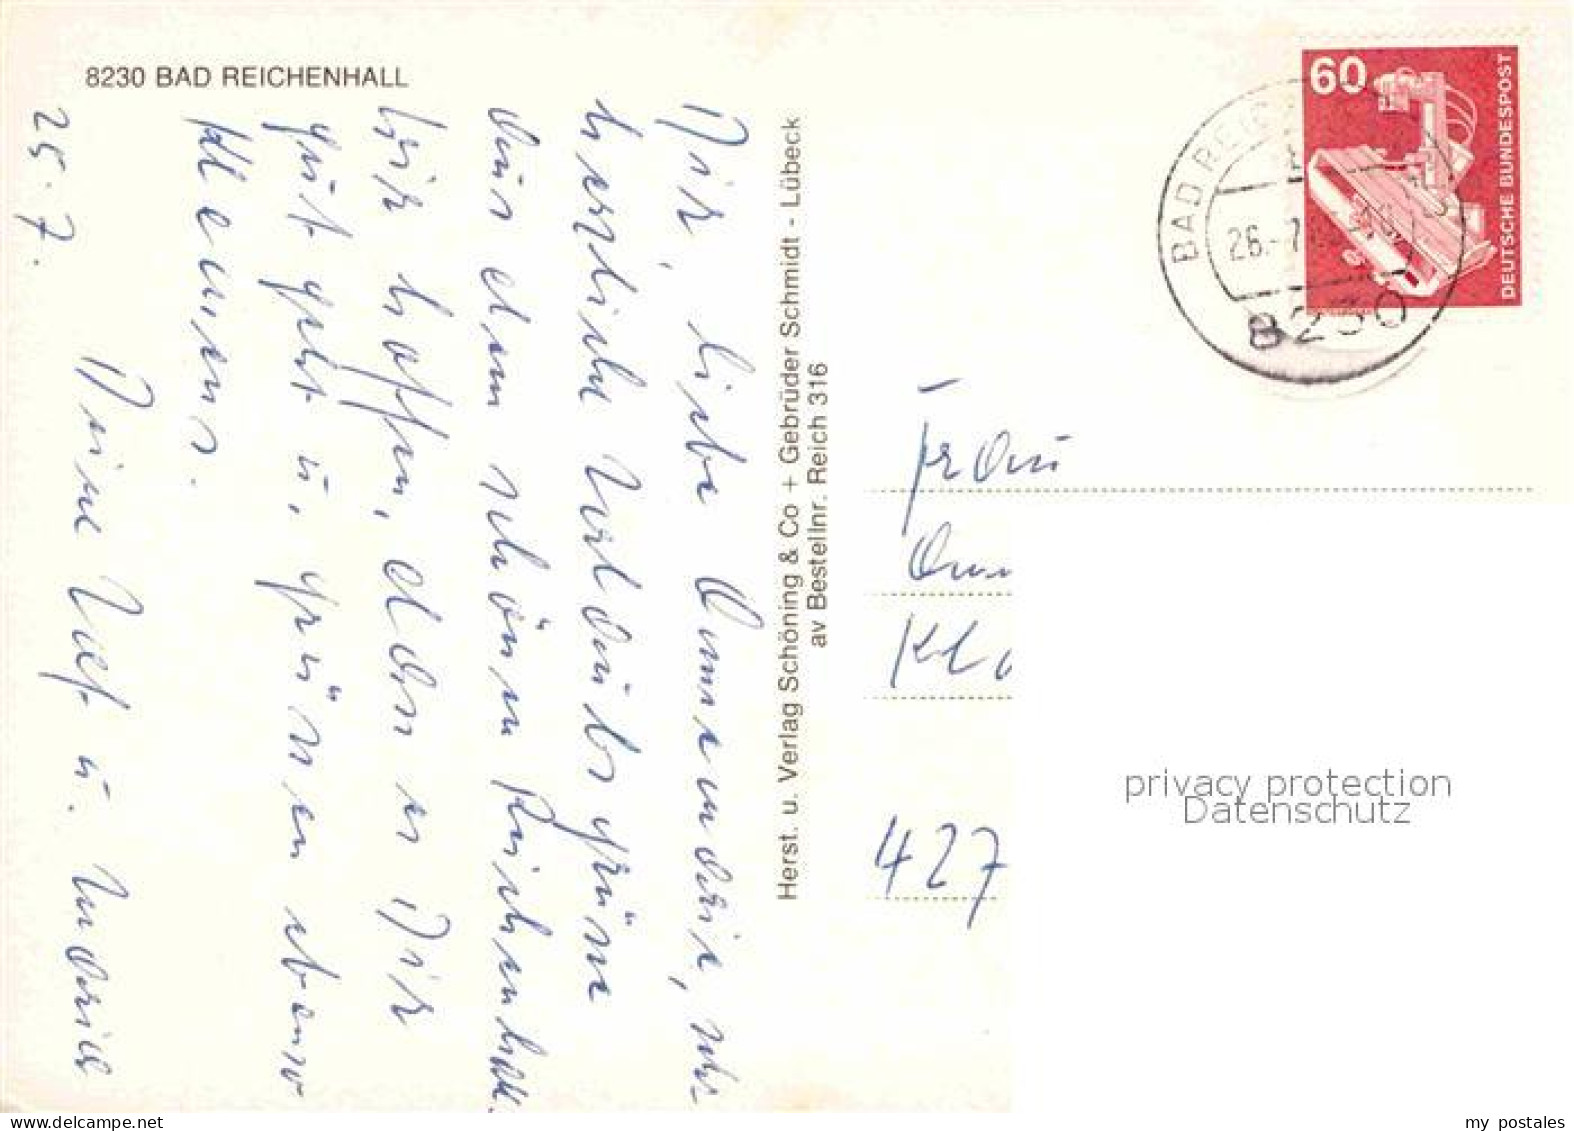 8230 BAD REICHENHALL
Dir, liebe Annemarie, sehr
herzliche Urlaubsgrüße
aus dem schönen Reichenhall.
Wir hoffen, daß es Dir
gut geht u. grüßen ebenso
Klemens.
Deine
u.
25.7.
Herst. u. Verlag Schöning & Co + Gebrüder Schmidt - Lübeck
av Bestellnr. Reich 316
60
DEUTSCHE BUNDESPOST
BAD REICH
26.-7
8230
Frau
427
privacy protection
Datenschutz
my postales